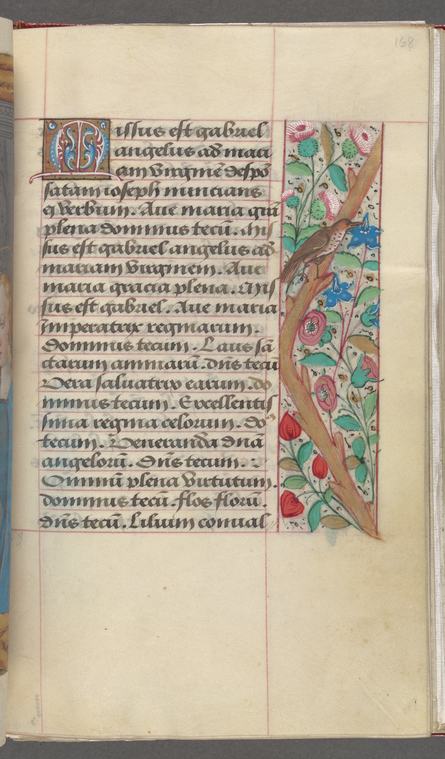 168
Missus est gabriel
angelus ad mari
am virginē despō
satam ioseph nuncians
ei verbum. Aue maria grā
plena dominus tecū. Mis
sus est gabriel angelus ad
mariam virginem. Aue
maria gracia plena. Mis
sus est gabriel. Aue maria
imperatrix reginarum.
dominus tecum. Laus sā
ctarum animarū. dn̄s tecū
Vera saluatrix earum. do
minus tecum. Excellentis
sima regina celorum. Do
tecum. Veneranda dn̄ā
angelorū. Dn̄s tecum.
Omniū plena virtutum.
dominus tecū. flos florū.
dn̄s tecū. Lilium conual